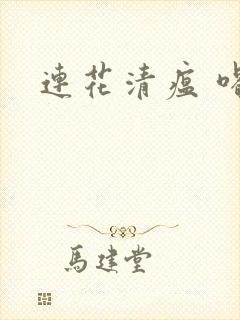 連花清瘟
馬建堂